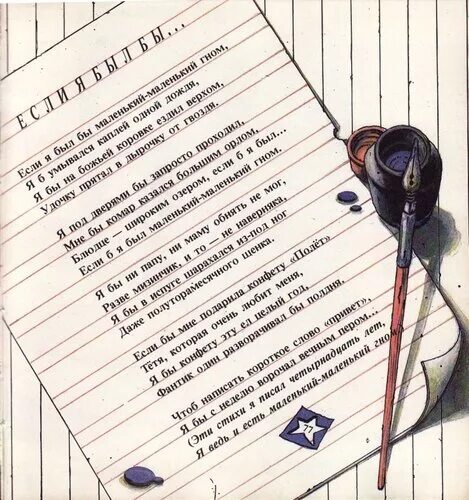 ЕСЛИ Я БЫЛ БЫ...
Если я был бы маленький-маленький гном,
Я б умывался каплей одной дождя,
Я бы на божьей коровке ездил верхом,
Удочку прятал в дырочку от гвоздя.
Я под дверями бы запросто проходил,
Мне бы комар казался большим орлом,
Блюдце — широким озером, если б я был...
Если б я был маленький-маленький гном.
Я бы ни папу, ни маму обнять не мог,
Разве мизинчик, и то — не наверняка,
Я бы в испуге шарахался из-под ног
Даже полуторамесячного щенка.
Если бы мне подарила конфету «Полёт»
Тётя, которая очень любит меня,
Я бы конфету эту ел целый год,
Фантик один разворачивал бы полдня.
Чтоб написать короткое слово «привет»,
Я бы с неделю ворочал вечным пером...
(Эти стихи я писал четырнадцать лет,
Я ведь и есть маленький-маленький гном)
77